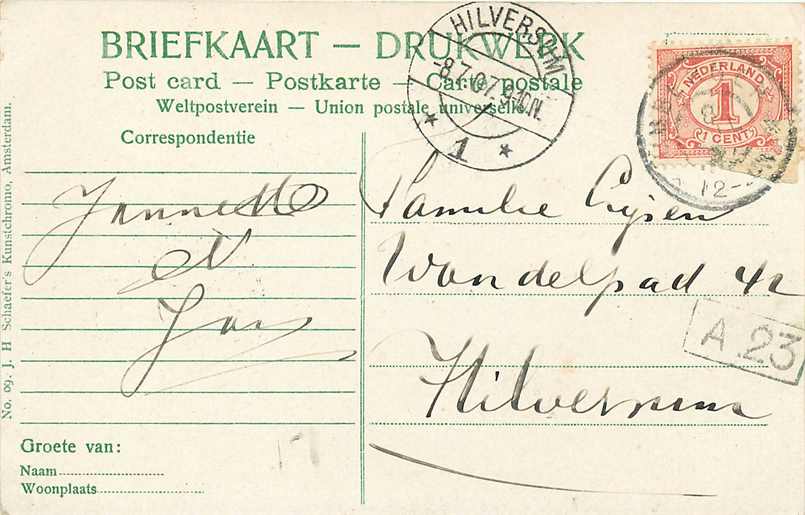 BRIEFKAART — DRUKWERK
Post card — Postkarte — Carte postale
Weltpostverein — Union postale universelle
Correspondentie
HILVERSUM
8.7.07. 9-10N.
* 1 *
NEDERLAND
1
1 CENT
12-
Jannette
et
Jan
Familie
Wandelpad 42
Hilversum
A 23
Groete van:
Naam
Woonplaats
No. 09. J. H Schaefer's Kunstchromo, Amsterdam.